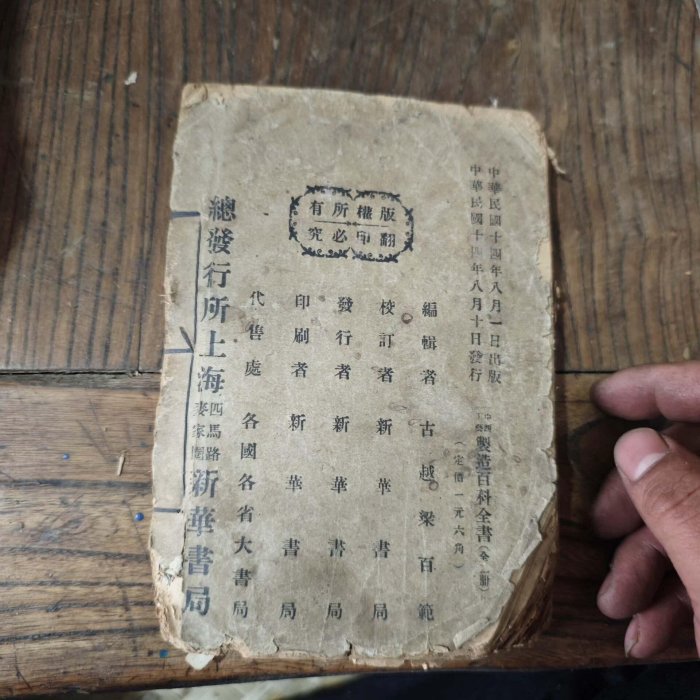 中華民國十四年八月一日出版
中華民國十四年八月十日發行
中西
工藝
製造百科全書
(定價一元六角)
版權所有
翻印必究
編輯者 古越梁百範
校訂者 新華書局
發行者 新華書局
印刷者 新華書局
代售處 各國各省大書局
總發行所上海
四馬路
麥家圈
新華書局